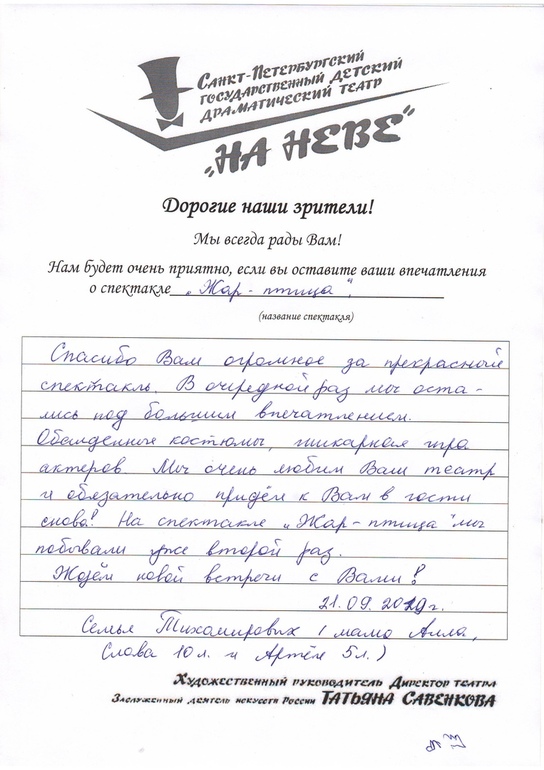 Санкт-Петербургский
государственный детский
драматический театр
„На Неве“
Дорогие наши зрители!
Мы всегда рады Вам!
Нам будет очень приятно, если вы оставите ваши впечатления
о спектакле „Жар - птица“,
(название спектакля)
Спасибо Вам огромное за прекрасный
спектакль. В очередной раз мы оста -
лись под большим впечатлением.
Обалденные костюмы, шикарная игра
актеров. Мы очень любим Ваш театр
и обязательно придём к Вам в гости
снова! На спектакле „Жар - птица“ мы
побывали уже второй раз.
Ждём новой встречи с Вами!
21.09.2019г.
Семья Тихомировых ( мама Алла,
Слава 10 л. и Артём 5 л.)
Художественный руководитель Директор театра
Заслуженный деятель искусств России Татьяна Савенкова